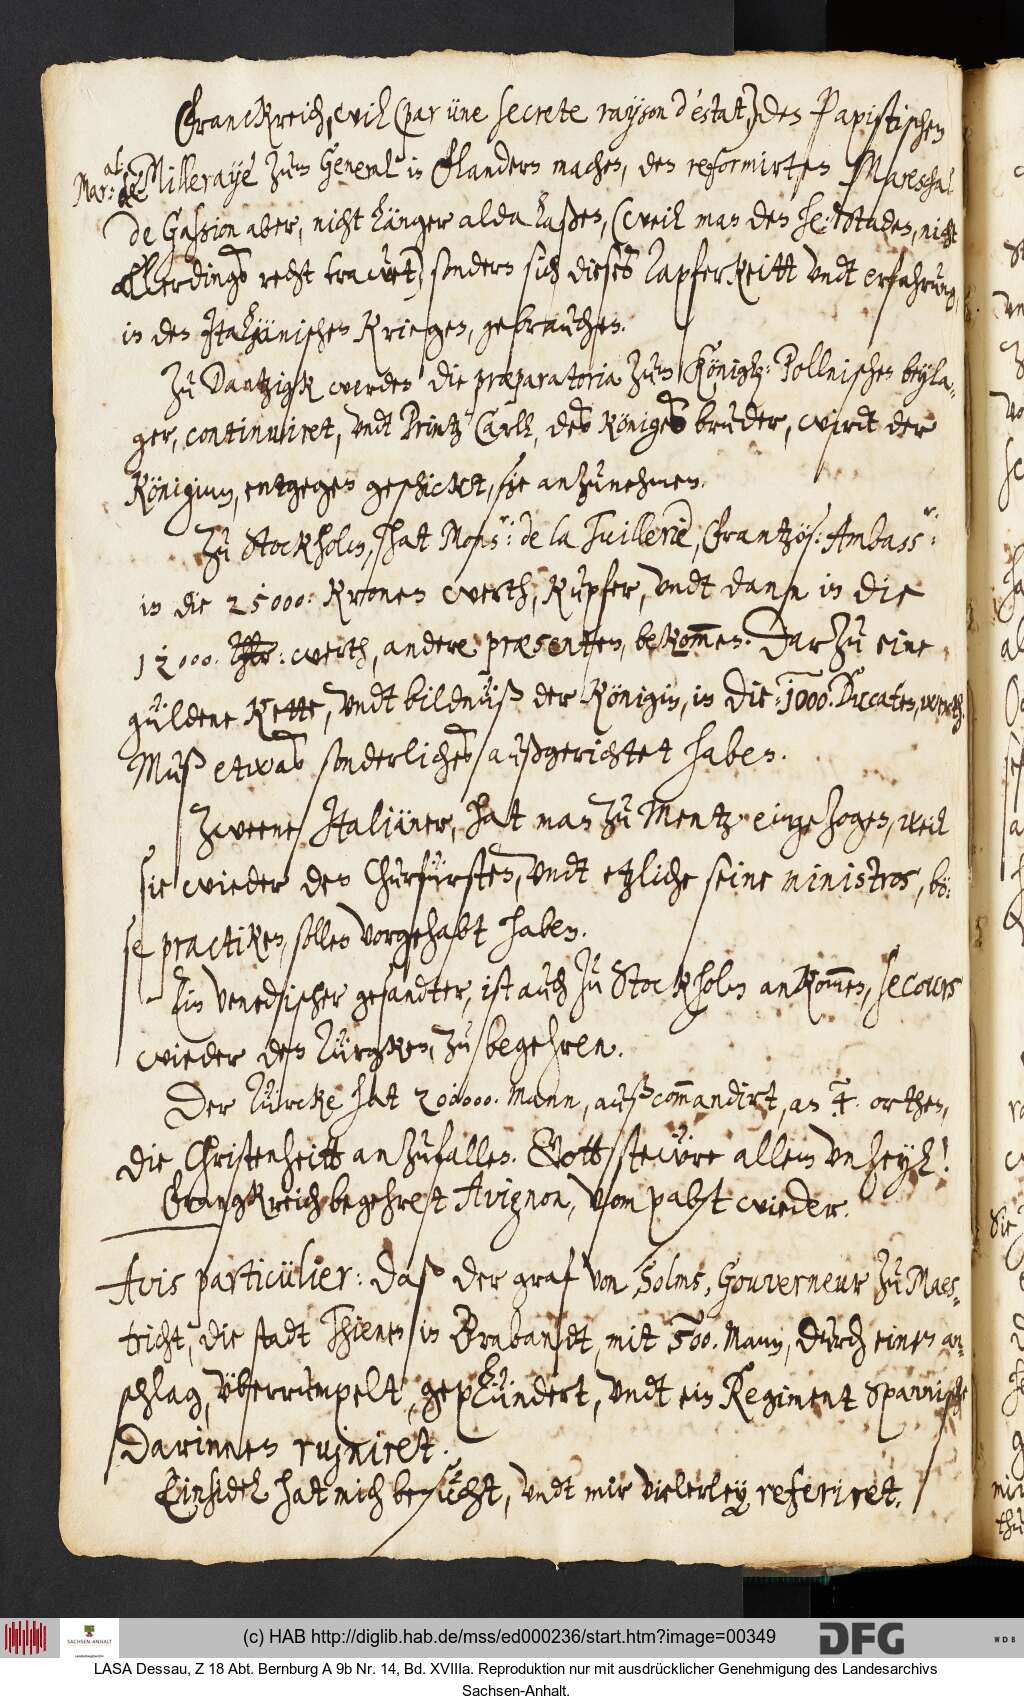 Franckreich, will (par üne secrete rayson d'éstat,) den Papistischen
Mar:al: de Milleraye zum General in Flandern machen, den reformirten Mareschal
de Gassion aber, nicht länger alda laßen, (weil man den he: Staden, nicht
allerdings recht trawet) sondern sich dieses tapferkeitt vndt erfahrung,
in den Italiänischen Kriegen, gebrauchen.
Zu Dantzigk werden die præparatoria zum Königl: Pollnischen beyla-
ger, continuiret, vndt Printz Carll, des Königes bruder, wirdt der
Königinn, entgegen geschickt, sie anzunehmen.
Zu Stockholm, hat Monsr: de la Tuillerie, Frantzös: Ambassr:
in die 25000: Kronen werth, Kupfer, vndt dann in die
12000. Thlr: werth, andere præsenten, bekommen. Darzu eine
güldene Kette, vndt bildnüß der Königin, in die 1000. Ducaten, werth.
Muß etwas sonderliches außgerichtet haben.
Zweene Italiäner, hat man zu Mentz eingezogen, weil
sie wieder den Churfürsten, vndt etzliche seine ministros, bö-
se practiken, sollen vorgehabt haben.
Ein Venedischer gesandter, ist auch zu Stockholm ankommen, secours
wieder den Türgken, zu begehren.
Der Türcke hat 200000. Mann, auß commandirt, an 4. orthen,
die Christenheitt anzufallen. Gott stewre allem vnheyl!
Frangkreich begehret Avignon, vom pabst wieder.
Avis particülier: daß der graf von Solms, Gouverneur zu Maes-
tricht, die stadt Thienen in Brabandt, mit 500. Mann, durch einen an-
schlag, vberrumpelt, geplündert, vndt ein Regiment Spannische
darinnen ruiniret.
Einsidel hat mich besucht, vndt mir vielerley referiret.
(c) HAB http://diglib.hab.de/mss/ed000236/start.htm?image=00349
SACHSEN-ANHALT
DFG
WDB
LASA Dessau, Z 18 Abt. Bernburg A 9b Nr. 14, Bd. XVIIIa. Reproduktion nur mit ausdrücklicher Genehmigung des Landesarchivs
Sachsen-Anhalt.